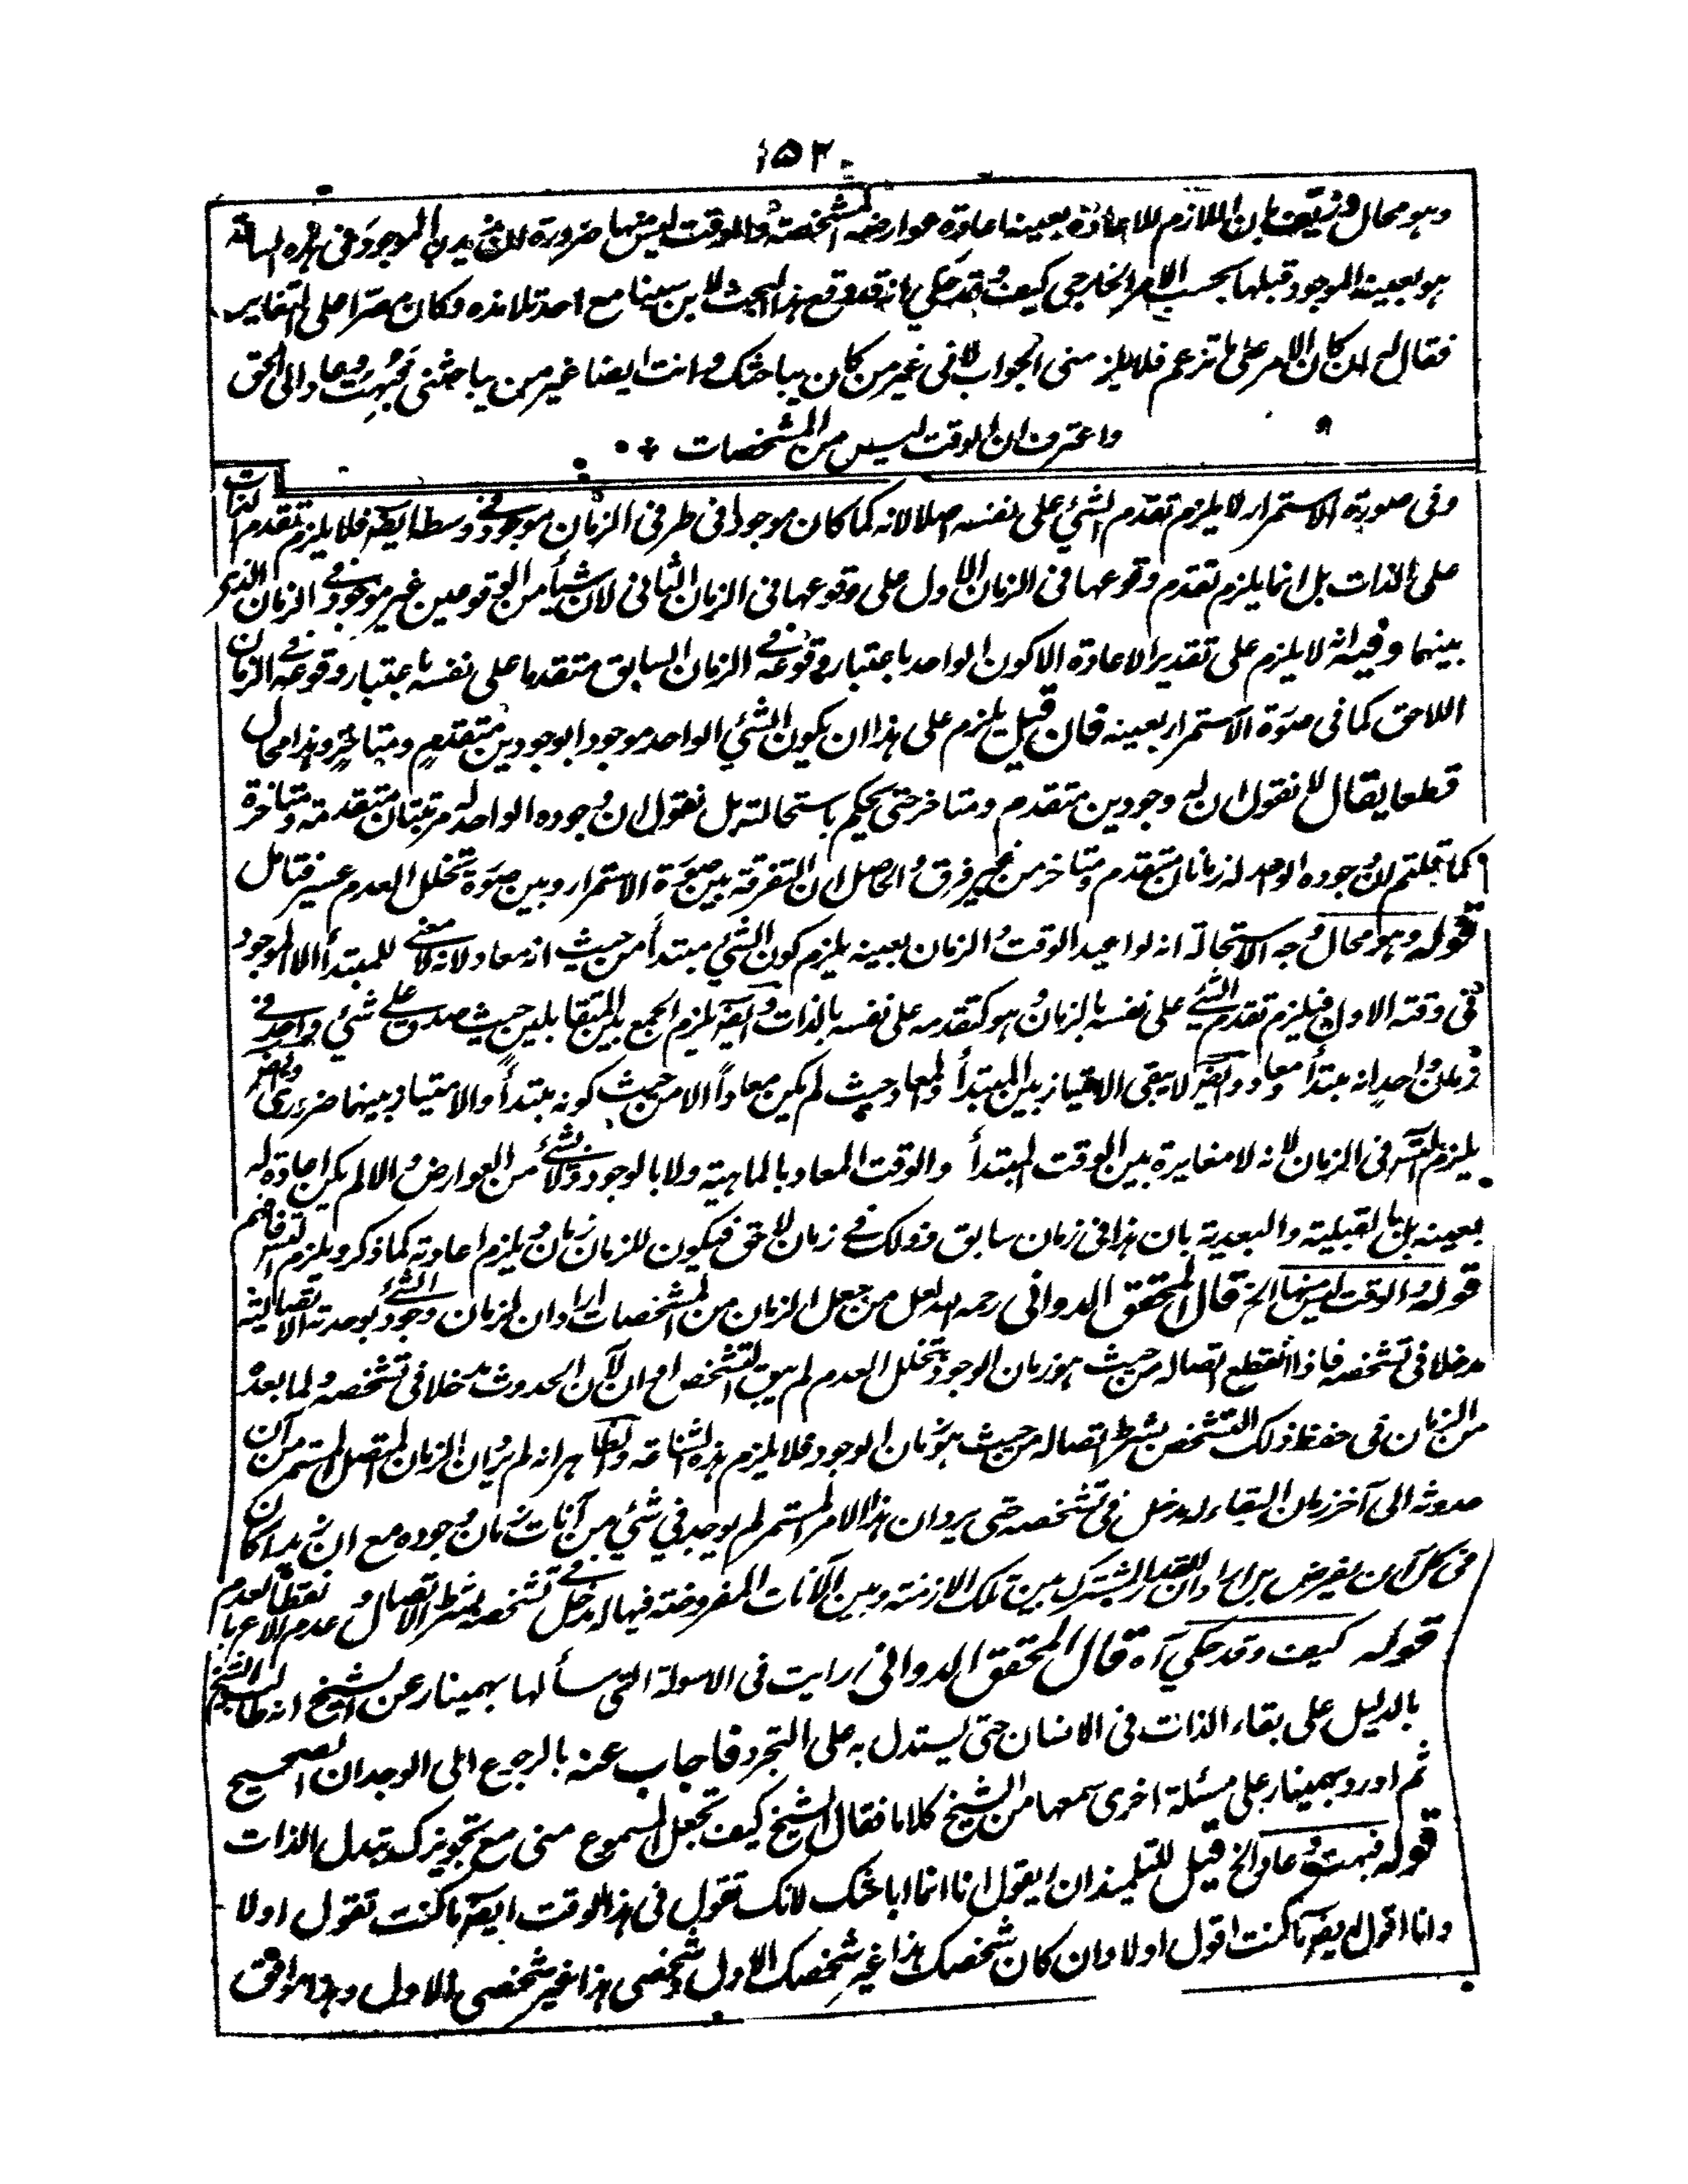 ١٥٢
وهو محال وضعيف بان اللازم للاعادة بعينه اعادة عوارضه المشخصة والوقت ليس منها ضرورة ان زيدن الموجود فى هذه الساعة
هو بعينه الموجود قبلها بحسب الامر الخارجى كيف وقد حكي انه قد وقع هذا البحث لابن سينا مع احد تلامذه وكان مصرا على التغاير
فقال له ان كان الامر على ما تزعم فلا يلزمنى الجواب لانى غير من كان يباحثك وانت ايضا غير من يباحثنى فبهت وعاد الى الحق
واعترف ان الوقت ليس من المشخصات
وفى صورة الاستمرار لا يلزم تقدم الشئ على نفسه اصلا لانه كما كان موجودا فى طرفى الزمان موجود فى وسطه ايضا فلا يلزم تقدم الذات
على الذات بل انما يلزم تقدم وقوعها فى الزمان الاول على وقوعها فى الزمان الثانى لان شيأ من الوقوعين غير موجود فى الزمان الذى
بينهما وفيه انه لا يلزم على تقدير الاعادة الا كون الواحد باعتبار وقوعه فى الزمان السابق متقدما على نفسه باعتبار وقوعه فى الزمان
اللاحق كما فى صورة الاستمرار بعينه فان قيل يلزم على هذا ان يكون الشئ الواحد موجودا بوجودين متقدم ومتاخر وهذا محال
قطعا يقال لا نقول ان له وجودين متقدم ومتاخر حتى يحكم باستحالته بل نقول ان وجوده الواحد له مرتبتان متقدمة ومتاخرة
كما قلتم ان وجوده الواحد له زمانان متقدم ومتاخر من غير فرق والحاصل ان التفرقة بين صورة الاستمرار وبين صورة تخلل العدم عسير فتامل
قوله وهو محال وجه الاستحالة انه لو اعيد الوقت والزمان بعينه يلزم كون الشئ مبتدأ من حيث انه معاد لانه لا معنى للمبتدأ الا الموجود
فى وقته الاول فيلزم تقدم الشئ على نفسه بالزمان وهو كتقدمه على نفسه بالذات وايضا يلزم الجمع بين المتقابلين حيث صدق على شئ واحد فى
زمان واحد انه مبتدأ ومعاد وايضا لا يبقى الامتياز بين المبتدأ والمعاد حيث لم يكن معادا الا من حيث كونه مبتدأ والامتياز بينهما ضرورى وايضا
يلزم التسلسل فى الزمان لانه لا مغايرة بين الوقت المبتدأ والوقت المعاد بالماهية ولا بالوجود ولا بشئ من العوارض والا لم يكن اعادة له
بعينه بل بالقبلية والبعدية بان هذا فى زمان سابق وذلك فى زمان لاحق فيكون للزمان زمان يلزم اعادته كما ذكر ويلزم التسلسل فافهم
قوله والوقت ليس منها الخ قال المحقق الدوانى رحمه الله لعل من جعل الزمان من المشخصات اراد ان لزمان وجود الشئ بوحدته الاتصالية
مدخلا فى تشخصه فاذا انقطع اتصاله من حيث هو زمان الوجود بتخلل العدم لم يبق التشخص او ان لآن الحدوث مدخلا فى تشخصه ولما بعده
من الزمان فى حفظ ذلك التشخص بشرط اتصاله من حيث هو زمان الوجود فلا يلزم هذه الشناعة والظاهر انه لم يرد ان الزمان المتصل المستمر من آن
حدوثه الى آخر زمان البقاء له مدخل فى تشخصه حتى يرد ان هذا الامر المستمر لم يوجد فى شئ من آنات زمان وجوده مع ان زيدا كان
فى كل آن يفرض بل اراد ان القدر المشترك بين تلك الازمنة وبين الآنات المفروضة فيها له مدخل فى تشخصه بشرط الاتصال وعدم الانقطاع بالعدم
قوله كيف وقد حكي آه قال المحقق الدوانى رايت فى الاسولة التى سألها بهمينار عن الشيخ انه طالب الشيخ
بالدليل على بقاء الذات فى الانسان حتى يستدل به على التجرد فاجاب عنه بالرجوع الى الوجدان الصحيح
ثم اورد بهمينار على مسئلة اخرى سمعها من الشيخ كلاما فقال الشيخ كيف تجعل المسموع منى مع تجويزك تبدل الذات
قوله فبهت وعاد الخ قيل للتلميذ ان يقول انا انما اباحثك لانك تقول فى هذا الوقت ايضا ما كنت تقول اولا
وانا اقول ايضا ما كنت اقول اولا وان كان شخصك هذا غير شخصك الاول وشخصى هذا غير شخصى الاول وهذا موافق